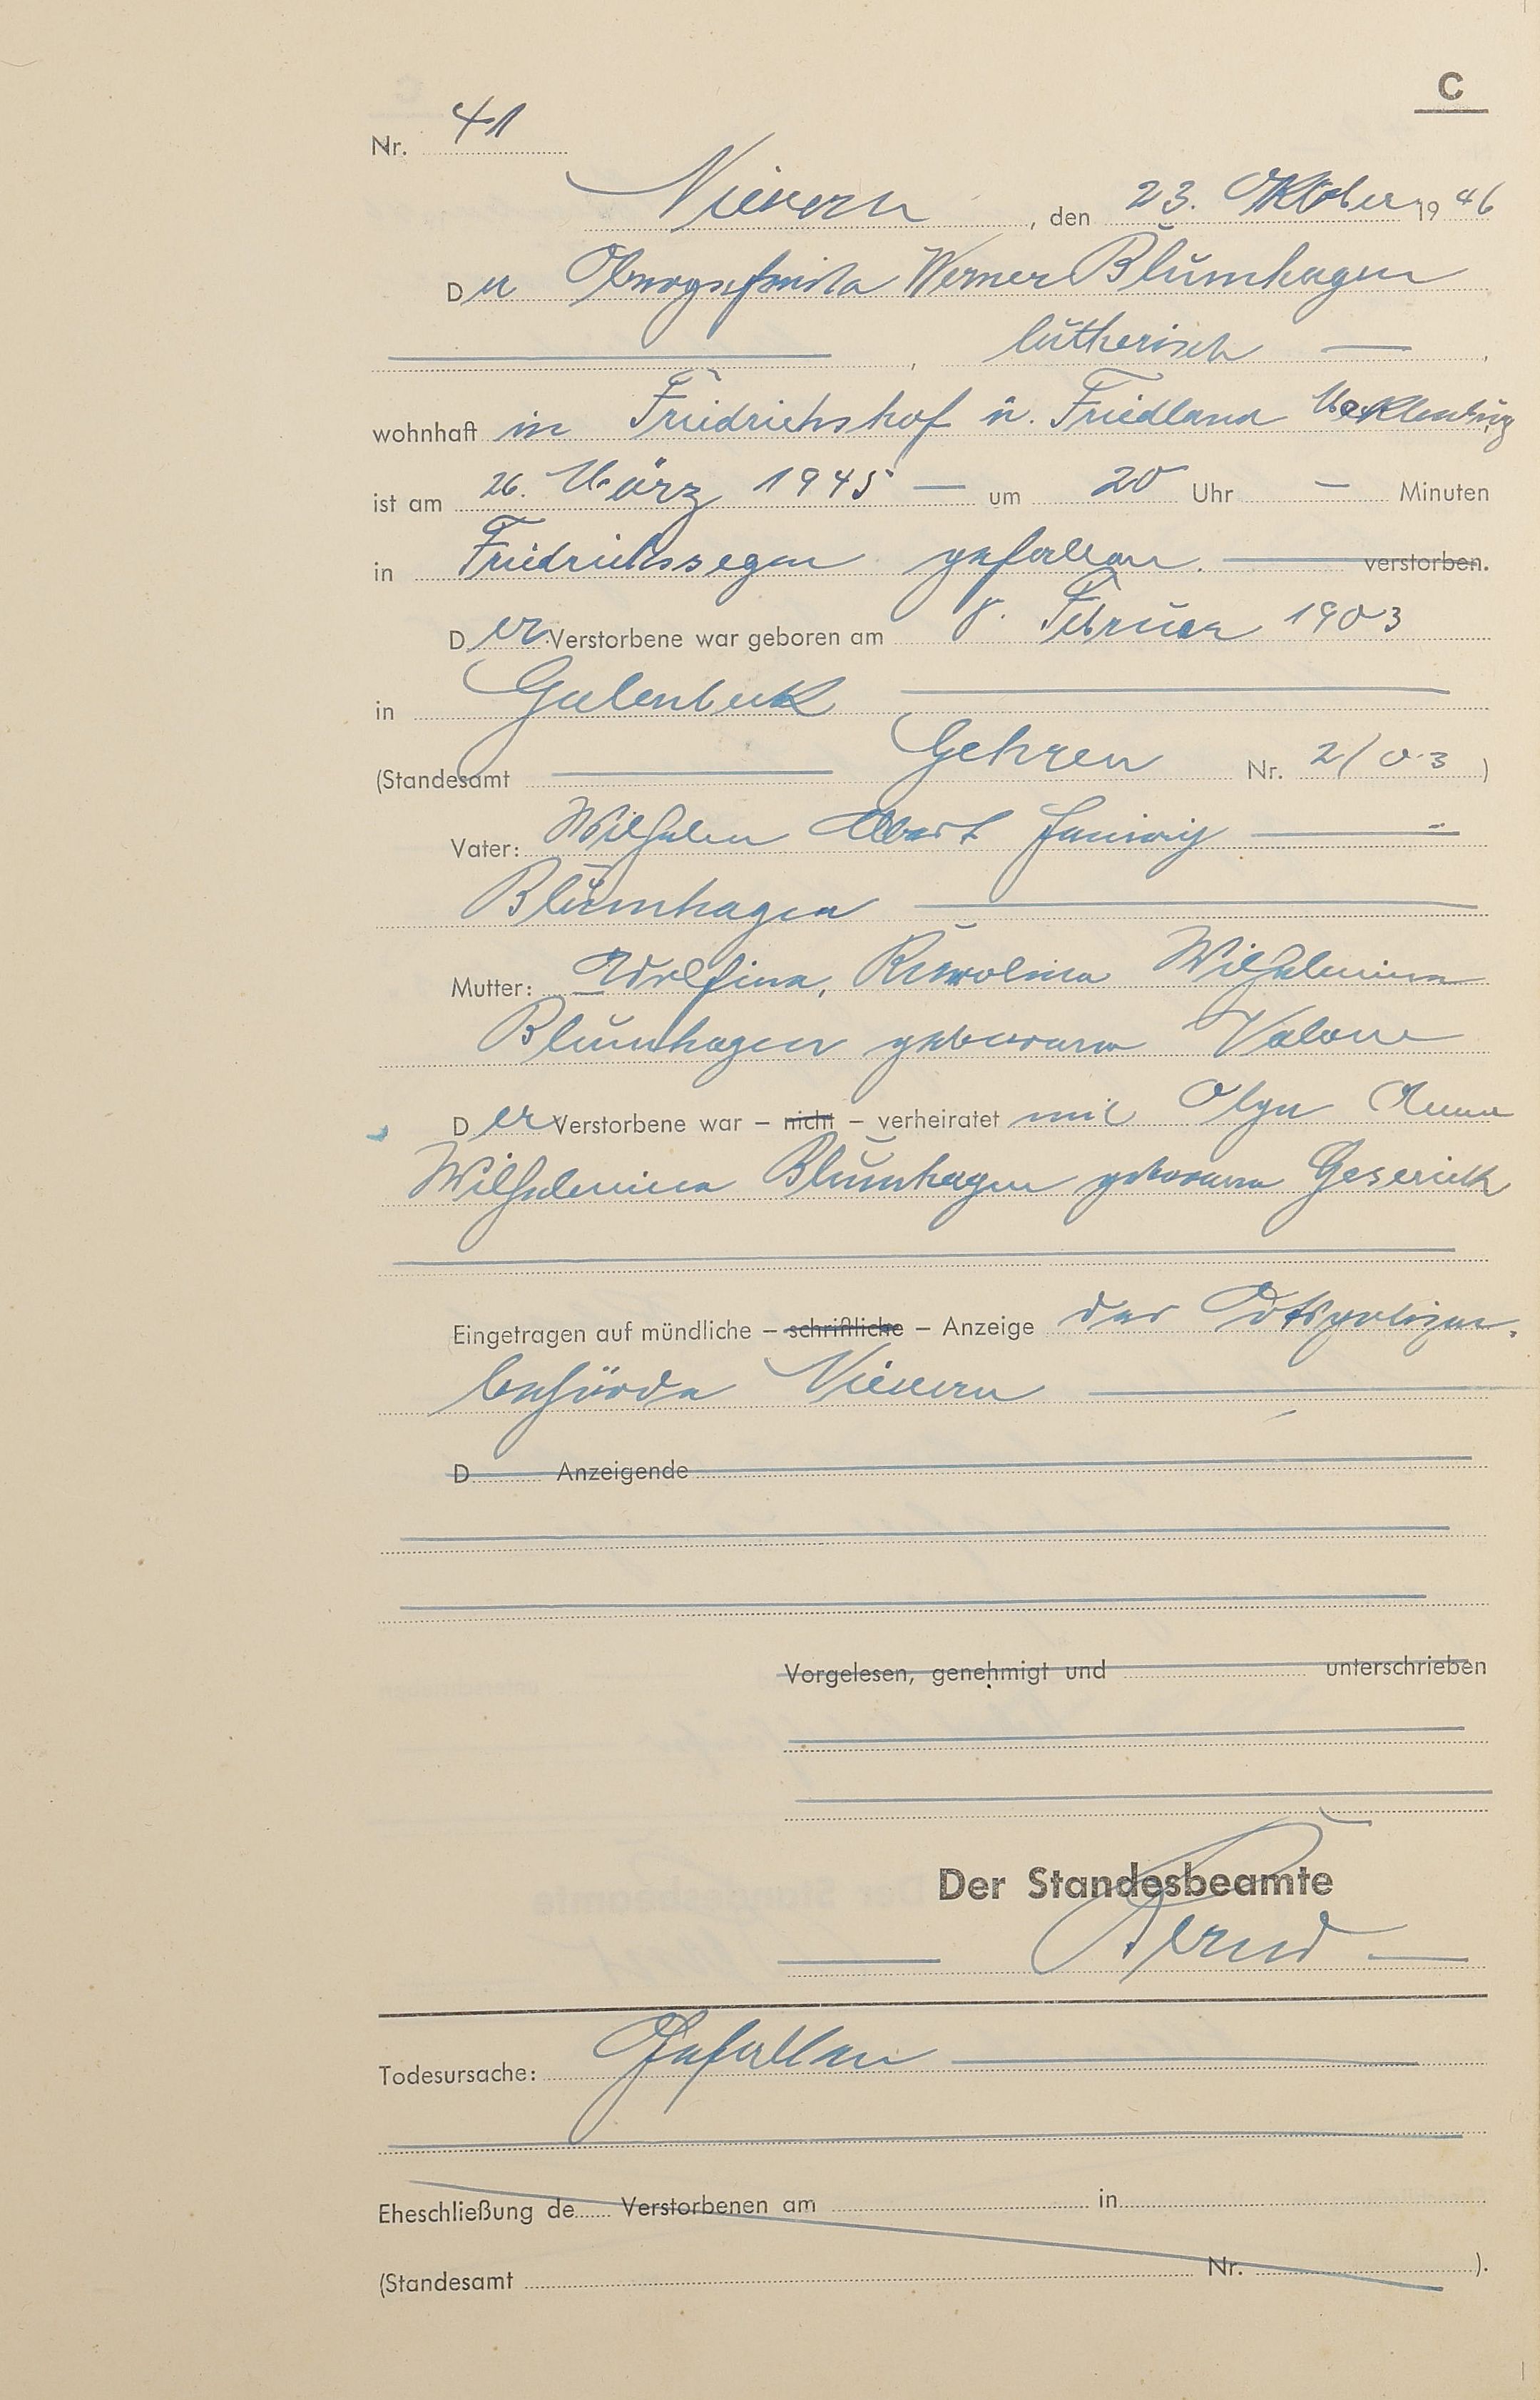 C
Nr. 41
Nievern, den 23. Oktober 1946
Der Obergefreite Werner Blumhagen
, lutherisch — ,
wohnhaft in Friedrichshof ü. Friedland Mecklenburg
ist am 26. März 1945 — um 20 Uhr — Minuten
in Friedrichssegen gefallen. verstorben.
Der Verstorbene war geboren am 8. Februar 1903
in Galenbeck
(Standesamt Gehren Nr. 2/03)
Vater: Wilhelm Albert
Blumhagen
Mutter: Adolfine, Karoline Wilhelmine
Blumhagen geborene
Der Verstorbene war – nicht – verheiratet mit Olga Anna
Wilhelmine Blumhagen geborene Geserick
Eingetragen auf mündliche – schriftliche – Anzeige der Ortspolizei-
behörde Nievern
D Anzeigende
Vorgelesen, genehmigt und unterschrieben
Der Standesbeamte
Todesursache: Gefallen
Eheschließung de Verstorbenen am in
(Standesamt Nr. ).